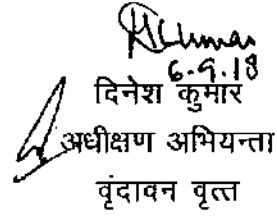 6.9.18
दिनेश कुमार
अधीक्षण अभियन्ता
वृंदावन वृत्त